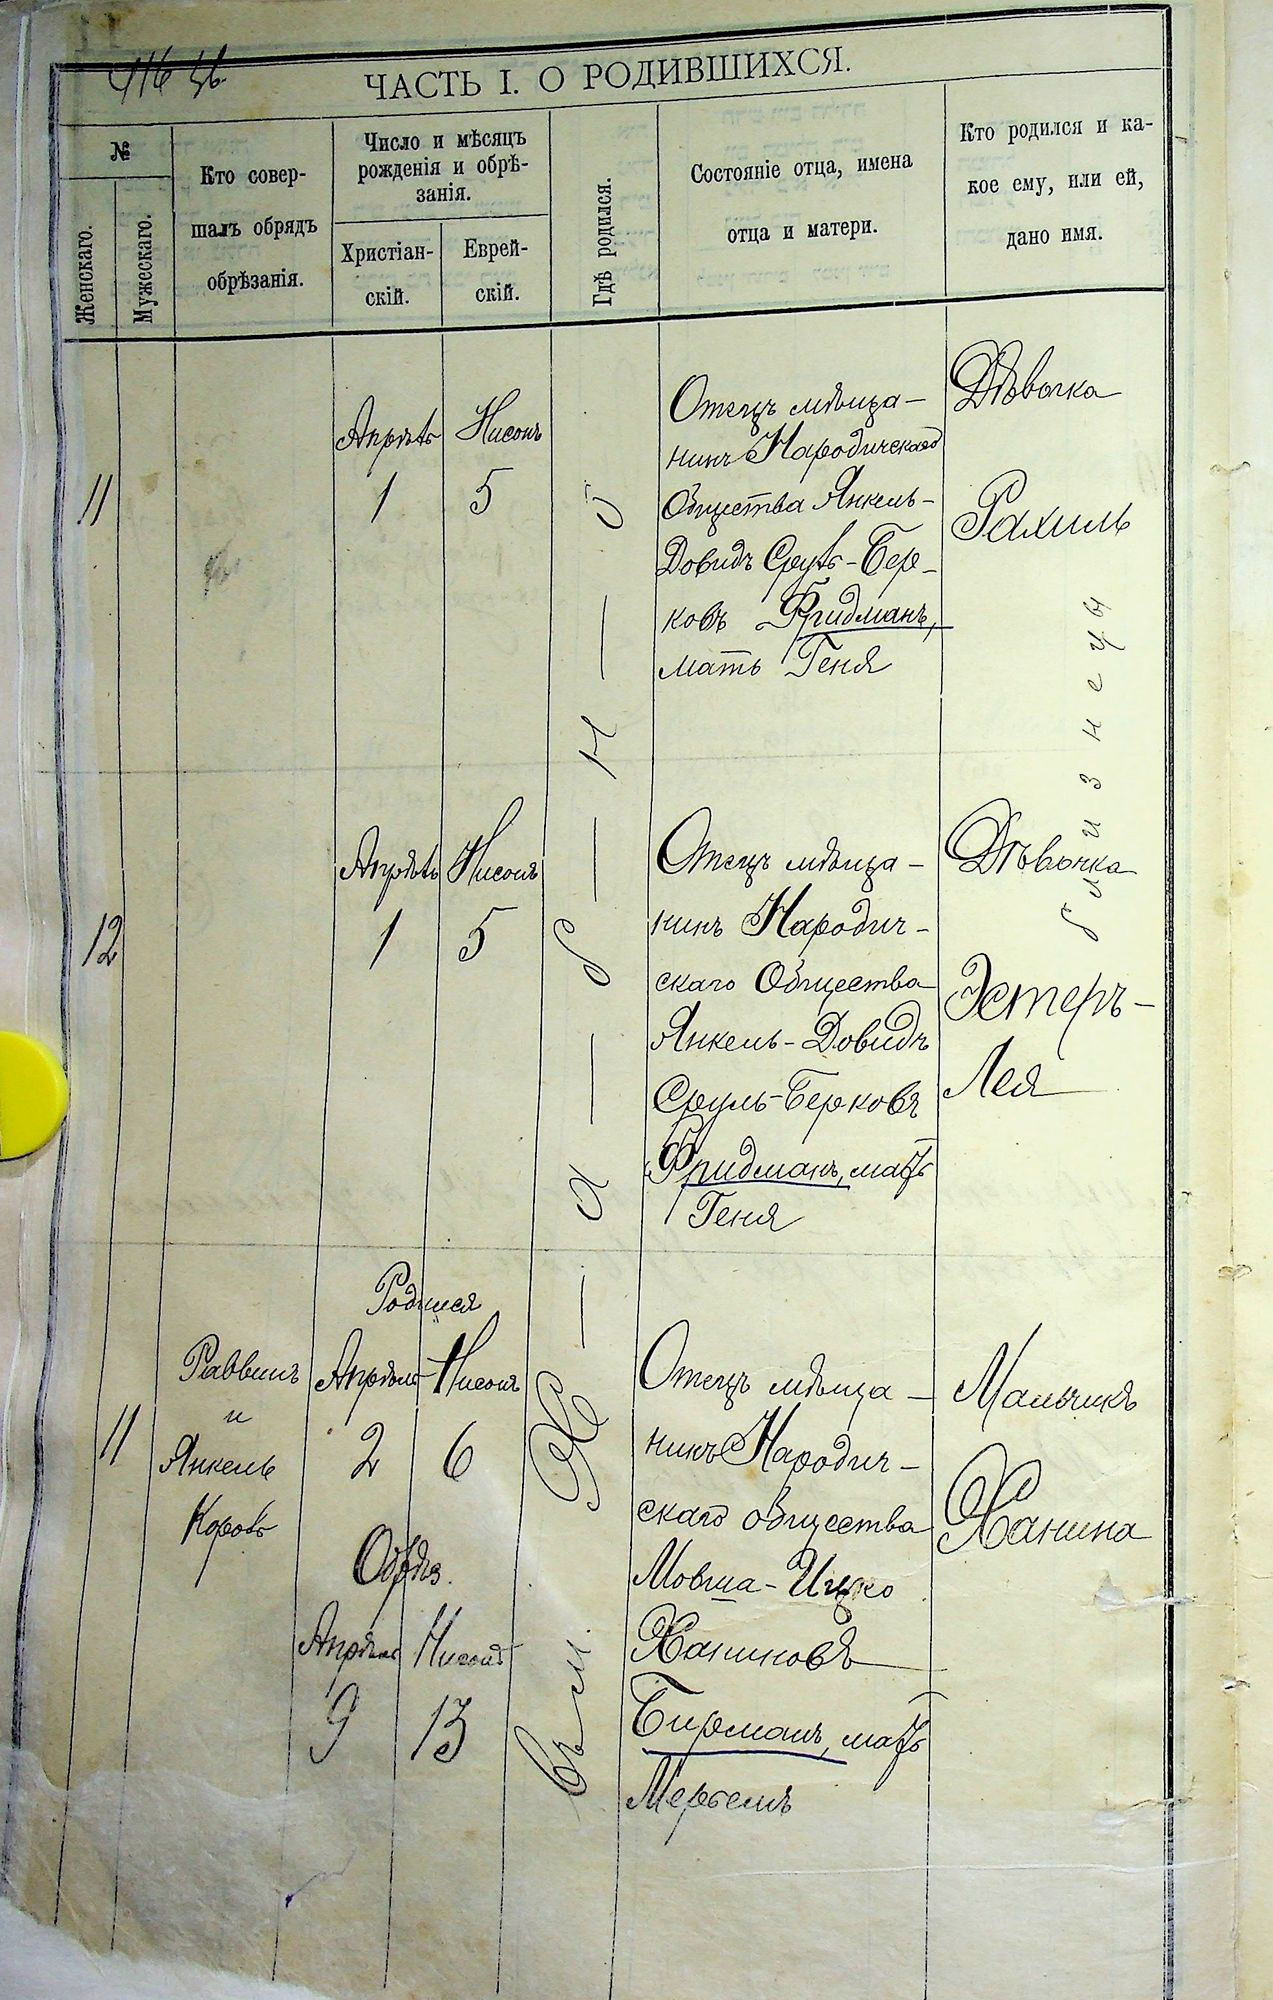 116 зв.
ЧАСТЬ I. О РОДИВШИХСЯ.
№
Женскаго.
Мужескаго.
Кто совер-
шалъ обрядъ
обрѣзанія.
Число и мѣсяцъ
рожденія и обрѣ-
занія.
Христіан-
скій.
Еврей-
скій.
Гдѣ родился.
Состояніе отца, имена
отца и матери.
Кто родился и ка-
кое ему, или ей,
дано имя.
11
Апрѣль
1
Нисонъ
5
Отецъ мѣща-
нинъ Народичскаго
Общества Янкель-
Довидъ Сруль-Бер-
ковъ Фридманъ,
мать Геня
Дѣвочка
Рахиль
близнецы
12
Апрѣль
1
Нисонъ
5
Отецъ мѣща-
нинъ Народич-
скаго Общества
Янкель-Довидъ
Сруль-Берковъ
Фридманъ, мать
Геня
Дѣвочка
Эстеръ-
Лея
11
Раввинъ
и
Янкель
Родился
Апрѣль
2
Нисонъ
6
Обрѣз.
Апрѣль
9
Нисонъ
13
Въ м.
Отецъ мѣща-
нинъ Народич-
скаго общества
Мовша-Ицко
Ханиновъ
Бирманъ, мать
Мальчикъ
Ханина